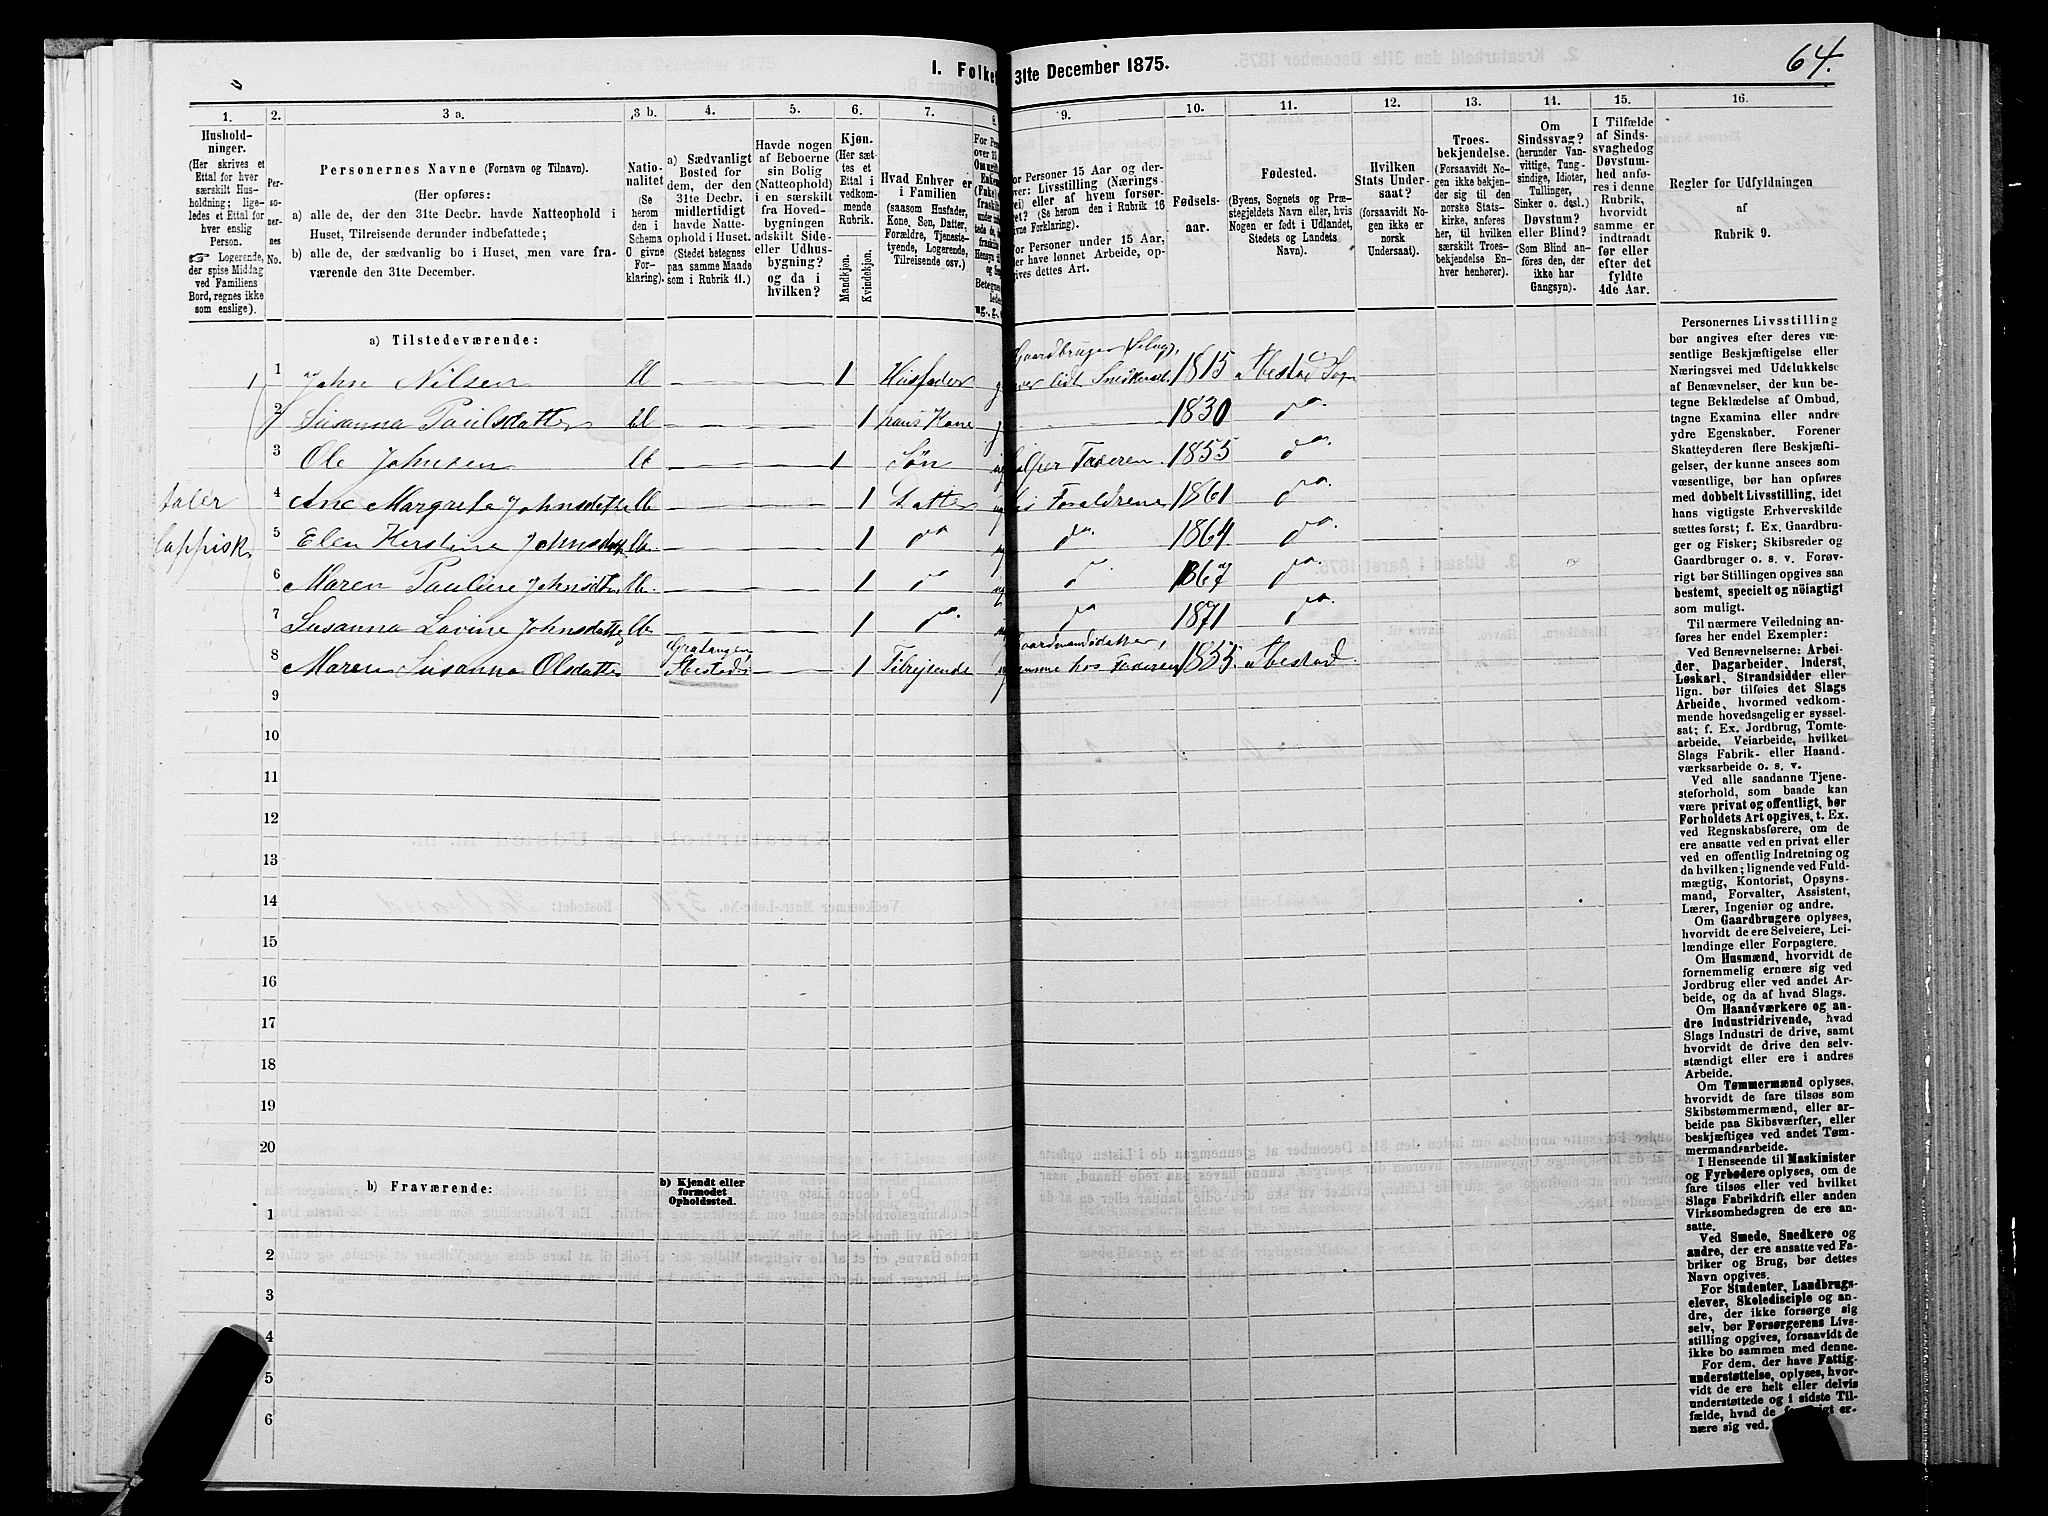 64.
I. Folke
31te December 1875.
1.
2.
3 a.
3 b.
4.
5.
6.
7.
8.
9.
10.
11.
12.
13.
14.
15.
16.
Hushold-
ninger.
(Her skrives et
Ettal for hver
særskilt Hus-
holdning; lige-
ledes et Ettal for
hver enslig
Person.
☞ Logerende,
der spise Middag
ved Familiens
Bord, regnes ikke
som enslige).
Per-
soner-
nes
No.
Personernes Navne (Fornavn og Tilnavn).
(Her opføres:
a) alle de, der den 31te Decbr. havde Natteophold i
Huset, Tilreisende derunder indbefattede;
b) alle de, der sædvanlig bo i Huset, men vare fra-
værende den 31te December.
Natio-
nalitet
(Se
herom
den i
Schema
C givne
For-
klaring).
a) Sædvanligt
Bosted for
dem, der den
31te Decbr.
midlertidigt
havde Natte-
ophold i Huset.
(Stedet betegnes
paa samme Maade
som i Rubrik 11.)
Havde nogen
af Beboerne
sin Bolig
(Natteophold)
i en særskilt
fra Hoved-
bygningen
adskilt Side-
eller Udhus-
bygning?
og da i
hvilken?
Kjøn.
(Her sæt-
tes et
Ettal i
vedkom-
mende
Rubrik.
Mandkjøn.
Kvindekjøn.
Hvad Enhver er
i Familien
(saasom Husfader,
Kone, Søn, Datter,
Forældre, Tjeneste-
tyende, Logerende,
Tilreisende osv.)
For Personer 15 Aar og der-
over: Livsstilling (Nærings-
vei) eller af hvem forsør-
get? (Se herom den i Rubrik 16
givne Forklaring).
For Personer under 15 Aar,
der have lønnet Arbeide, op-
gives dettes Art.
Fødsels-
aar.
Fødested.
(Byens, Sognets og Præ-
stegjeldets Navn eller, hvis
Nogen er født i Udlandet,
Stedets og Landets
Navn).
Hvilken
Stats Under-
saat?
(forsaavidt No-
gen ikke er
norsk
Undersaat).
Troes-
bekjendelse.
(Forsaavidt No-
gen ikke bekjen-
der sig til den
norske Stats-
kirke, anføres
her, til hvilken
særskilt Troes-
bekjendelse En-
hver henhører).
Om
Sindssvag?
(herunder Van-
vittige, Tung-
sindige, Idioter,
Tullinger,
Sinker o. desl.)
Døvstum?
eller Blind?
(Som Blind an-
føres den, der
ikke har
Gangsyn).
I Tilfælde
af Sinds-
svaghed og
Døvstum-
hed anfø-
res i denne
Rubrik,
hvorvidt
samme er
indtraadt
før eller
efter det
fyldte
4de Aar.
Regler for Udfyldningen
af
Rubrik 9.
a) Tilstedeværende:
1 1 John Nilsen 1 Husfader 1815
2 Susanna Paulsdatter 1 hans Kone 1830 do.
3 Ole Johnsen 1 Søn hjelper Faderen 1855 do.
4 Ane Margrete Johnsdatter 1 Datter 1861 do.
5 Elen Kerstine Johnsdatter 1 do do. 1864 do.
6 Maren Pauline Johnsdtr 1 do do. 1867 do.
7 Susanna Lavine Johnsdatter 1 do. do 1871 do.
8 Maren Susanna Olsdatter Gratangen Ibestad 1 Tilrejsende hjemme hos Faderen 1855 Ibestad
taler
lappisk
9
10
11
12
13
14
15
16
17
18
19
20
b) Fraværende:
b) Kjendt eller
formodet
Opholdssted.
1
2
3
4
5
6
Personernes Livsstilling
bør angives efter deres væ-
sentlige Beskjæftigelse eller
Næringsvei med Udelukkelse
af Benævnelser, der kun be-
tegne Beklædelse af Ombud,
tagne Examina eller andre
ydre Egenskaber. Forener
Skatteyderen flere Beskjæfti-
gelser, der kunne ansees som
væsentlige, bør han opføres
med dobbelt Livsstilling, idet
hans vigtigste Erhvervskilde
sættes først; f. Ex. Gaardbru-
ger og Fisker; Skibsreder og
Gaardbruger o. s. v. Forøv-
rigt bør Stillingen opgives saa
bestemt, specielt og nöiagtigt
som muligt.
Til nærmere Veiledning an-
føres her endel Exempler:
Ved Benævnelserne: Arbei-
der, Dagarbeider, Inderst,
Løskarl, Strandsidder eller
lign. bør tilføies det Slags
Arbeide, hvormed vedkom-
mende hovedsagelig er syssel-
sat; f. Ex. Jordbrug, Tomte-
arbeide, Veiarbeide, hvilket
Slags Fabrik- eller Haand-
værksarbeide o. s. v.
Ved alle saadanne Tjene-
steforhold, som baade kan
være privat og offentligt, bør
Forholdets Art opgives, t. Ex.
ved Regnskabsførere, om de
ere ansatte ved en privat eller
ved en offentlig Indretning og
da hvilken; lignende ved Fuld-
mægtig, Kontorist, Opsyns-
mand, Forvalter, Assistent,
Lærer, Ingeniør og andre.
Om Gaardbrugere oplyses,
hvorvidt de ere Selveiere, Lei-
lændinge eller Forpagtere.
Om Husmænd, hvorvidt de
fornemmelig ernære sig ved
Jordbrug eller ved andet Ar-
beide, og da af hvad Slags.
Om Haandværkere og an-
dre Industridrivende, hvad
Slags Industri de drive, samt
hvorvidt de drive den selv-
stændigt eller ere i andres
Arbeide.
Om Tømmermænd oplyses,
hvorvidt de fare tilsøs som
Skibstømmermænd, eller ar-
beide paa Skibsværfter, eller
beskjæftiges ved andet Tøm-
mermandsarbeide.
I Henseende til Maskinister
og Fyrbødere oplyses, om de
fare tilsøs eller ved hvilket
Slags Fabrikdrift eller anden
Virksomhedsgren de ere an-
satte.
Ved Smede, Snedkere og
andre, der ere ansatte ved Fa-
briker og Brug, bør dettes
Navn opgives.
For Studenter, Landbrugs-
elever, Skoledisciple og an-
dre, der ikke forsørge sig
selv, bør Forsørgerens Livs-
stilling opgives, forsaavidt de
ikke bo sammen med denne.
For dem, der have Fattig-
understøttelse, oplyses, hvor-
vidt de ere helt eller delvis
understøttede og i sidste Til-
fælde, hvad de forøvrigt er-
nære sig ved.